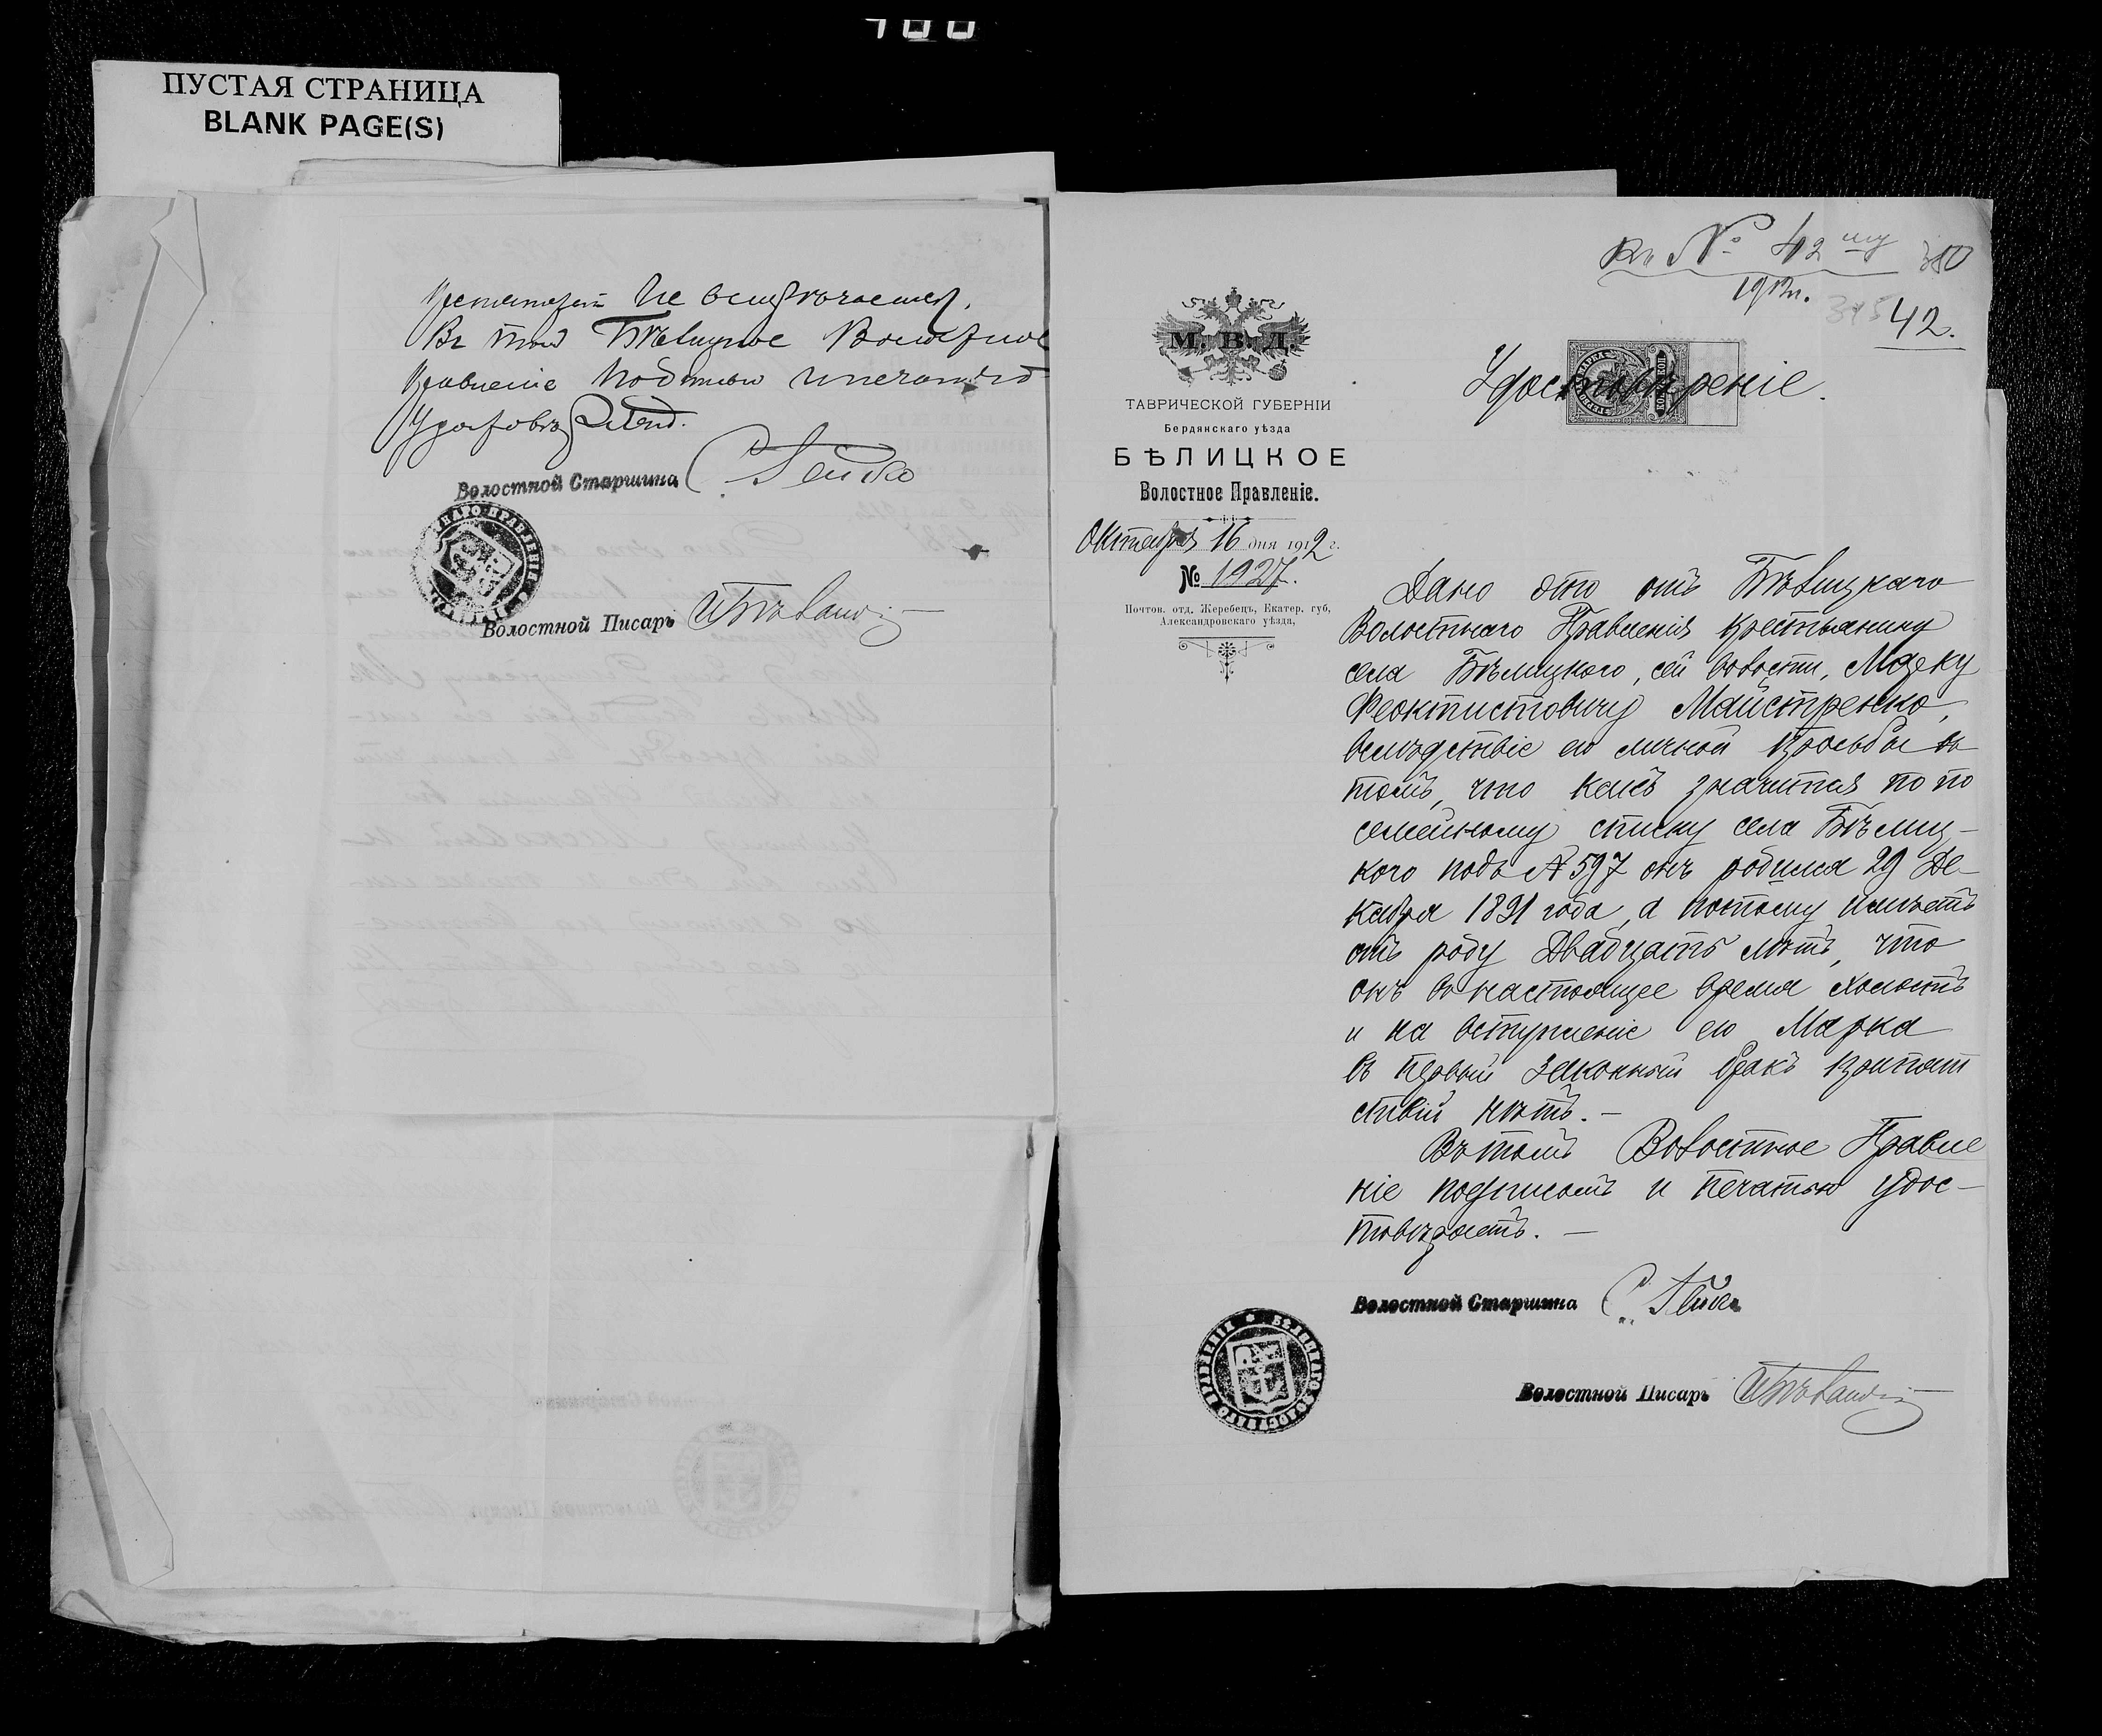 ПУСТАЯ СТРАНИЦА
BLANK PAGE(S)
препятствій не встрѣчается.
Въ томъ Бѣлицкое Волостное
Правленіе подписью и печатью
удостовѣряетъ.
Волостной Старшина С.
Волостной Писарь
Къ № 42 му
1912 г.
380
315
42.
М. В. Д.
ТАВРИЧЕСКОЙ ГУБЕРНІИ
Бердянскаго уѣзда
БѢЛИЦКОЕ
Волостное Правленіе.
Октября 16 дня 1912 г.
№ 1927.
Почтов. отд. Жеребецъ, Екатер. губ,
Александровскаго уѣзда,
Удостовѣреніе.
Дано это отъ Бѣлицкаго
Волостнаго Правленія крестьянину
села Бѣлицкого, сей волости, Марку
Феоктистовичу Майстренко,
вслѣдствіе его личной просьбы въ
томъ, что какъ значится по по
семейному списку села Бѣлиц-
кого подъ № 597 онъ родился 29 Де-
кабря 1891 года, а потому имѣетъ
отъ роду Двадцать лѣтъ, что
онъ въ настоящее время холостъ
и на вступленіе его Марка
въ первый законный бракъ препят
ствій нѣтъ. —
Въ томъ Волостное Правле
ніе подписомъ и печатью удос-
товѣряетъ. —
Волостной Старшина С.
БѢЛИЦКАГО ВОЛОСТНАГО ПРАВЛЕНІЯ
Волостной Писарь